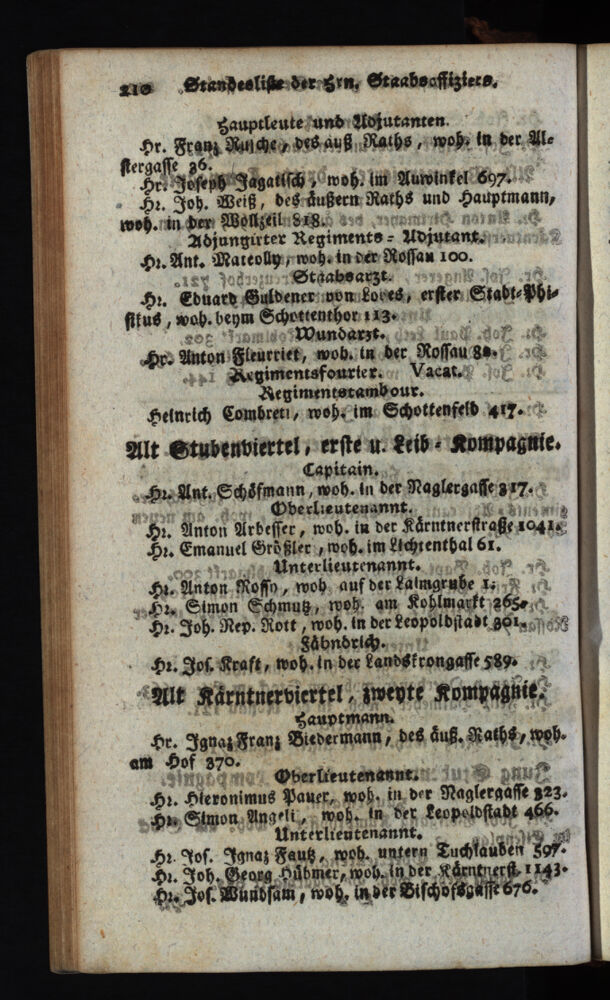 210 Standesliste der Hrn. Staabsoffiziers.
Hauptleute und Adjutanten.
Hr. Franz Rusche, des äuß Raths, woh. in der Al-
stergasse 36.
Hr. Joseph Jagatisch, woh. im Auwinkel 697.
Hr. Joh. Weiß, des äußern Raths und Hauptmann,
woh. in der Wollzeil 818.
Adjungirter Regiments-Adjutant.
Hr. Ant. Mateolly, woh. in der Rossau 100.
Staabsarzt.
Hr. Eduard Guldener von Lobes, erster Stadt-Phi-
sikus, woh. beym Schottenthor 113.
Wundarzt.
Hr. Anton Fleurriet, woh. in der Rossau 82.
Regimentsfourier. Vacat.
Regimentstambour.
Heinrich Combreti, woh. im Schottenfeld 417.
Alt Stubenviertel, erste u. Leib-Kompagnie.
Capitain.
Hr. Ant. Schöfmann, woh. in der Naglergasse 317.
Oberlieutenannt.
Hr. Anton Arbesser, woh. in der Kärntnerstraße 1041.
Hr. Emanuel Größler, woh. im Lichtenthal 61.
Unterlieutenannt.
Hr. Anton Rossy, woh auf der Laimgrube 1.
Hr. Simon Schmutz, woh. am Kohlmarkt 265.
Hr. Joh. Nep. Rott, woh. in der Leopoldstadt 301.
Fähndrich.
Hr. Jos. Kraft, woh. in der Landskrongasse 589.
Alt Kärntnerviertel, zweyte Kompagnie.
Hauptmann.
Hr. Ignaz Franz Biedermann, des äuß. Raths, woh.
am Hof 370.
Oberlieutenannt.
Hr. Hieronimus Pauer, woh. in der Naglergasse 323.
Hr. Simon Angeli, woh. in der Leopoldstadt 466.
Unterlieutenannt.
Hr. Jos. Ignaz Fautz, woh. untern Tuchlauben 597.
Hr. Joh. Georg Hübmer, woh. in der Kärntnerst. 1143.
Hr. Jos. Wundsam, woh. in der Bischofsgasse 676.